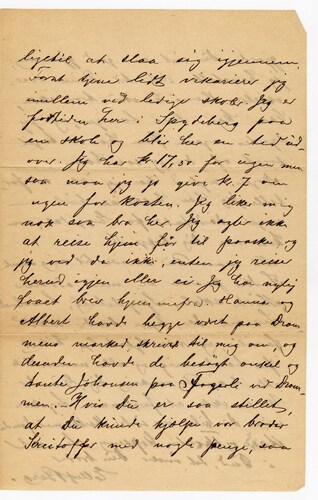 ligetil at slaa sig igjennem.
Foruten tjene lidt vikarierer jeg
imellem ved ledige skoler. Jeg er
fortiden her i Spydeberg paa
en skole og blir her en tid ud-
over. Jeg har kr. 17,50 for ugen men
saa maa jeg jo give kr. 7 om
ugen for kosten. Jeg liker mig
nok saa bra her. Jeg agter ikke
at reise hjem før til paaske, og
jeg ved da ikke, enten jeg reiser
herud igjen eller ei. Jeg har nylig
havt brev hjemmefra. Hanna og
Albert havde begge vært paa Dram-
mens marked skrives til mig om og
desuden havde de besøgt onkel og
tante Johansen paa Fagerli ved Dram-
men. Hvis Du er saa stillet,
at Du kunde hjælpe vor broder
Kristoffer med nogle penge, saa